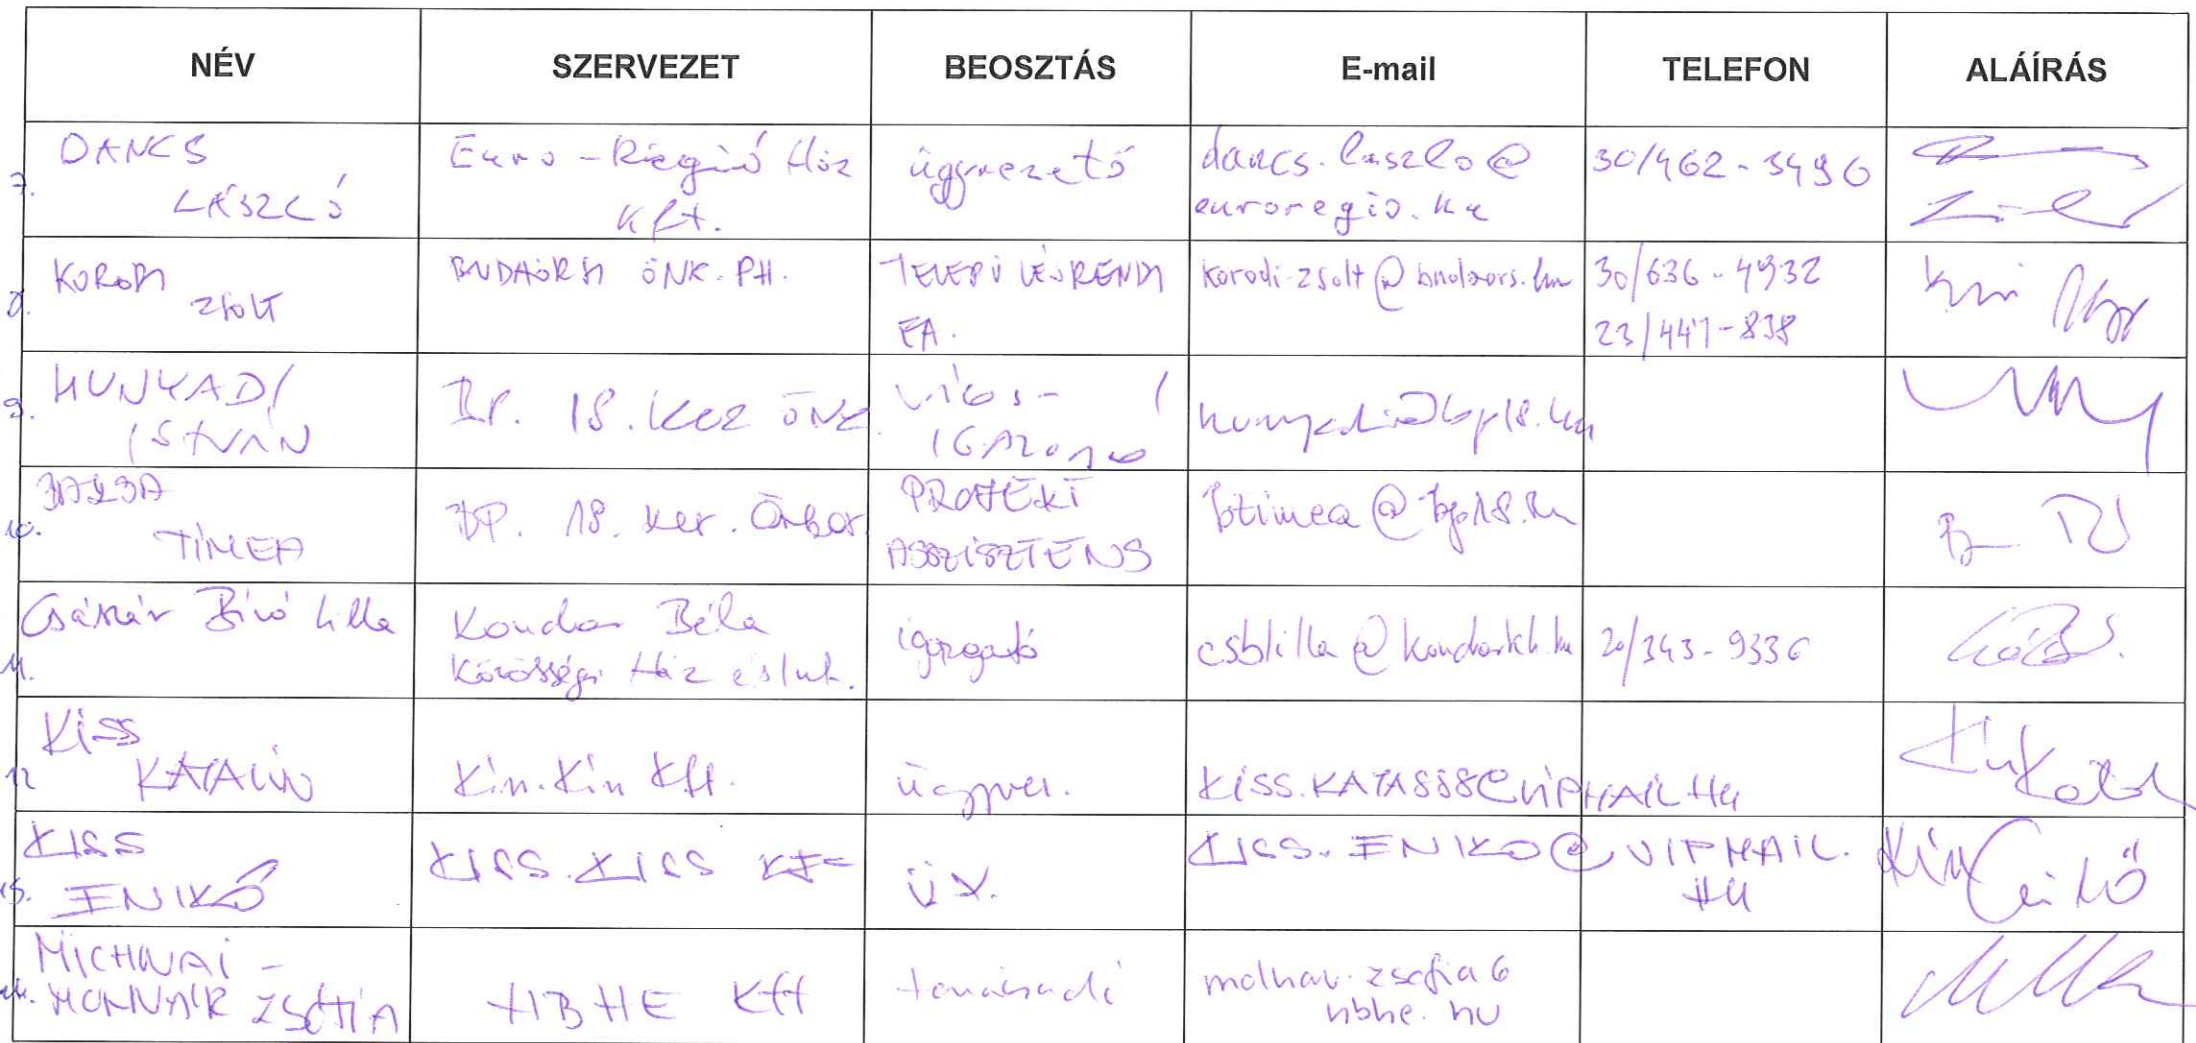 NÉV SZERVEZET BEOSZTÁS E-mail TELEFON ALÁÍRÁS
7. DANCS LÁSZLÓ Euro-Régió Ház Kft. ügyvezető dancs.laszlo@euroregio.hu 30/462-3496
8. KORODI ZSOLT BUDAÖRSI ÖNK. PH. TELEPÜLÉSRENDI EA. korodi.zsolt@budaors.hu 30/636-4932
23/447-838
9. HUNYADI ISTVÁN Bp. 18. ker ÖNK hunyadii@bp18.hu
10. TÍMEA BP. 18. ker. PROJEKT ASSZISZTENS btimea@bp18.hu
11. Császár Bíró Lilla Kondor Béla Közösségi Ház és Int. igazgató csblilla@kondorkh.hu 20/343-9336
12 Kiss KATALIN Kiss.Kiss Kft. ügyvez. KISS.KATA8888@VIPMAIL.HU
13. KISS ENIKŐ KISS.KISS KFT ÜV. KISS.ENIKO@VIPMAIL.HU
14. MOLNÁR ZSÓFIA HBHE Kft tanácsadó molnar.zsofia@hbhe.hu